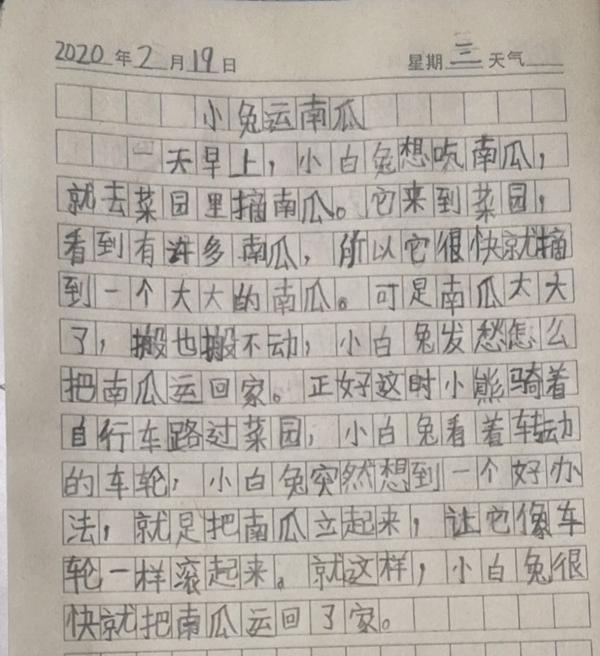 2020年2月19日 星期三 天气
小兔运南瓜
一天早上，小白兔想吃南瓜，
就去菜园里摘南瓜。它来到菜园，
看到有许多南瓜，所以它很快就摘
到一个大大的南瓜。可是南瓜太大
了，搬也搬不动，小白兔发愁怎么
把南瓜运回家。正好这时小熊骑着
自行车路过菜园，小白兔看着车转动
的车轮，小白兔突然想到一个好办
法，就是把南瓜立起来，让它像车
轮一样滚起来。就这样，小白兔很
快就把南瓜运回了家。